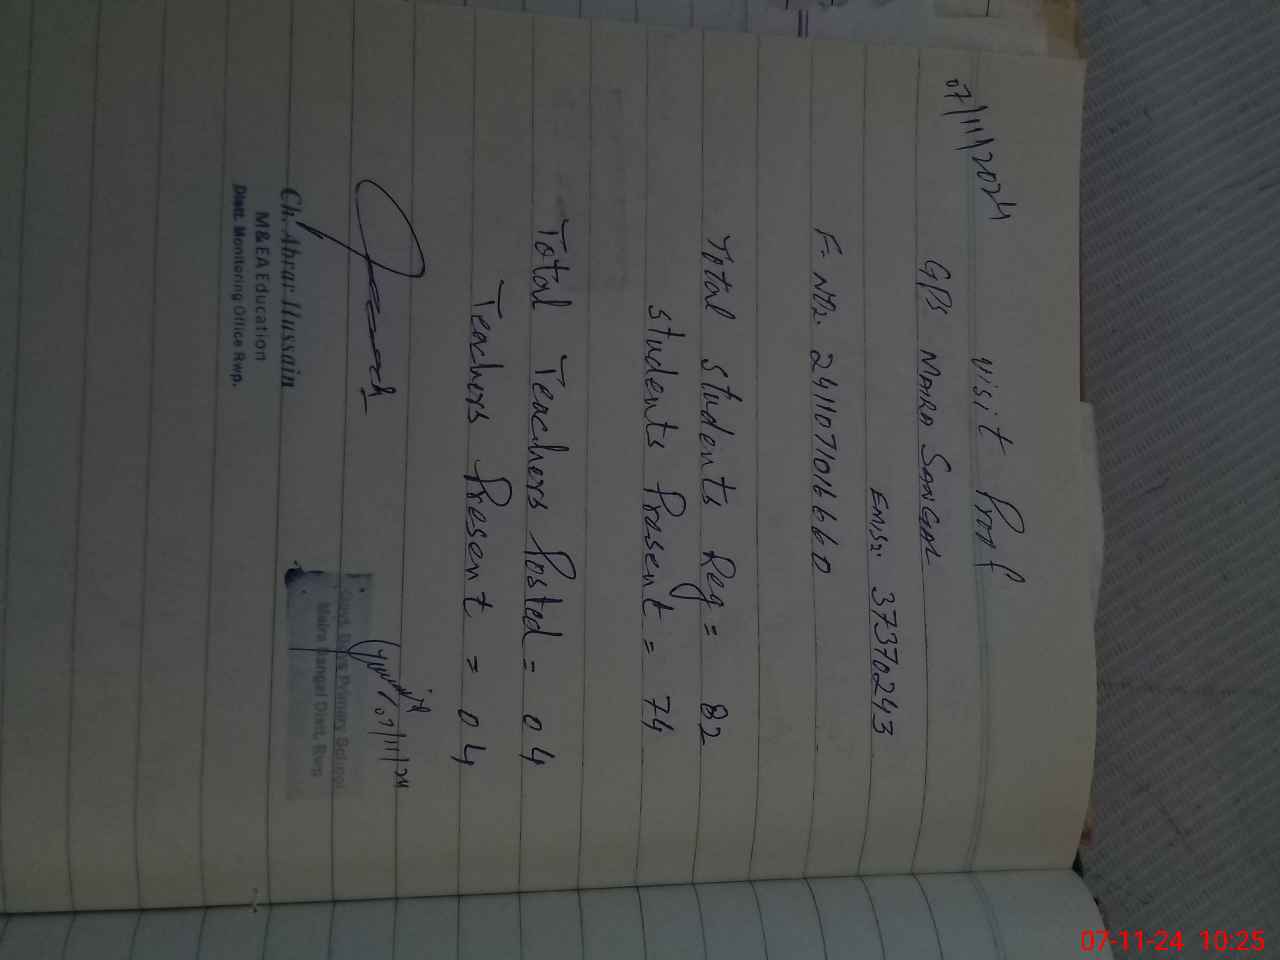 07/11/2024
Visit Proof
GPS MAIRA SANGAL
EMIS: 37370243
F. NO. 2411071016660
Total Students Reg = 82
Students Present = 74
Total Teachers Posted = 04
Teachers Present = 04
07/11/24
Ch. Abrar Hussain
M&EA Education
Distt. Monitoring Office Rwp.
Govt. Boys Primary School
Maira Sangal Distt, Rwp
07-11-24 10:25